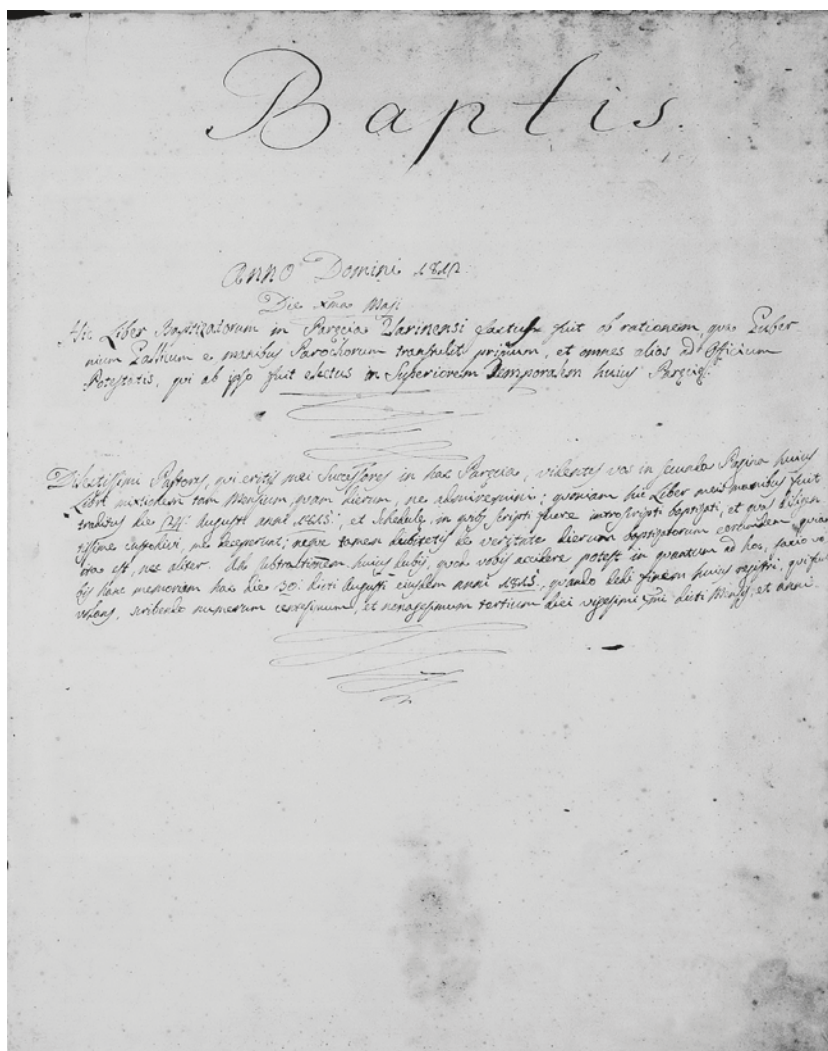 Baptis.
Anno Domini 1812.
Die Xma Maji
Hic Liber Baptizatorum in Parœcia Varinensi factus fuit ob rationem, qua Guber-
nium Patrium e manibus Parochorum transtulit primum, et omnes alios ad Officium
Potestatis, qui ab ipso fuit electus in Superiorem Temporalem huius Parœciæ.
Dilectissimi Pastores, qui eritis mei Successores in hac Parœcia, videntes vos in secunda Pagina huius
Libri mixtionem tam Mensium, quam dierum, ne admiremini; quoniam hic Liber meis manibus fuit
traditus die 24. Augusti anni 1813., et Schedulæ, in quibus scripti fuere introscripti baptizati, et quas diligen-
tissime custodivi, me; neque tamen dubitetis de veritate dierum baptizatorum eorundem, quia
ita est, nec aliter. Ad subtractionem huius dubij, quod vobis accidere potest in quantum ad hos, facio vo-
bis hanc memoriam hac die 30. dicti Augusti eiusdem anni 1813., quando dedi finem huius registri, qui fuit
scribendo numerum centesimum, et nonagesimum tertium diei vigesimi dicti Mensis, et anni.